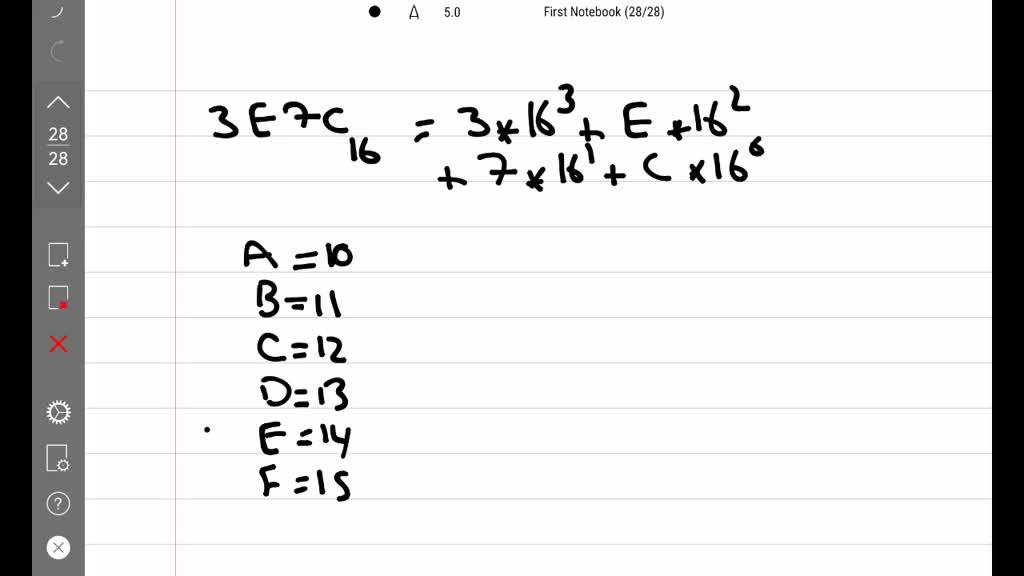 5.0 First Notebook (28/28)
28
28
3E7C₁₆ = 3*16³ + E*16²
+ 7*16¹ + C*16⁰
A = 10
B = 11
C = 12
D = 13
E = 14
F = 15
?